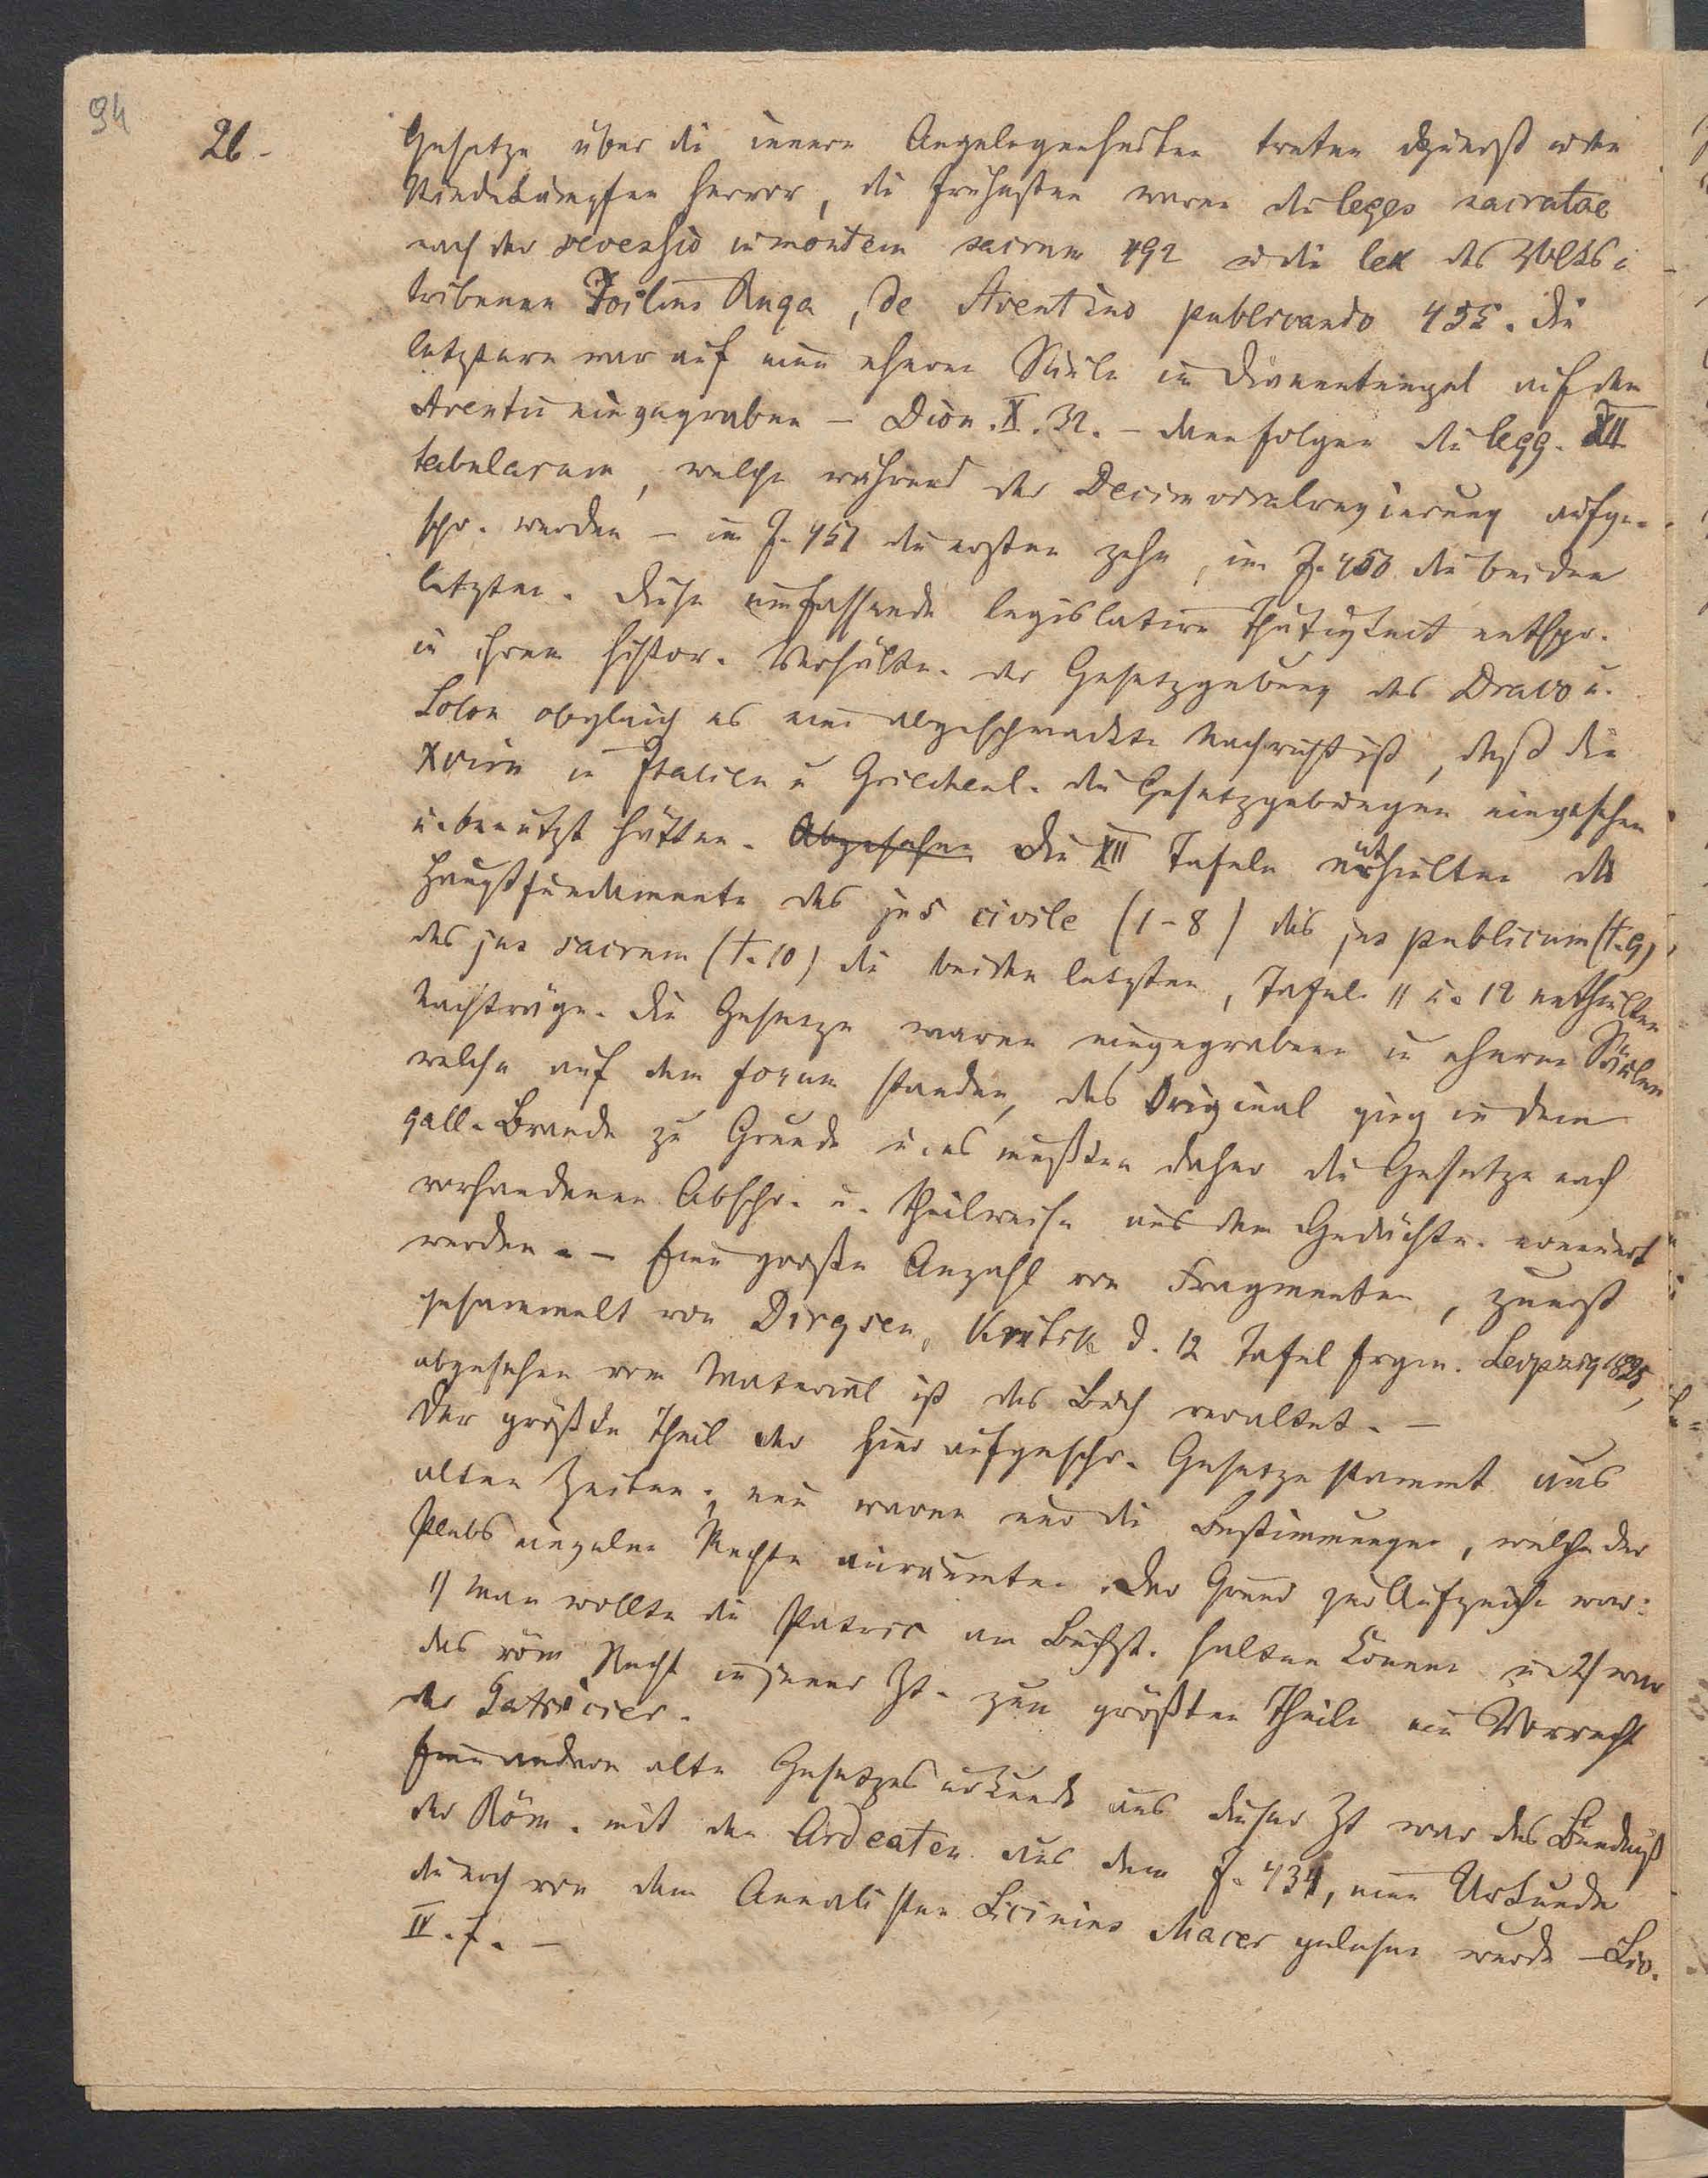 94
26.
Gesetze über die innern Angelegenheiten treten zuerst in den
Ständekämpfen hervor, die frühesten waren die leges sacratae
nach der secessio in montem sacrum 492 u die lex des Volks-
tribunen Icilius Ruga, de Aventino publicando 455. die
letztere war auf einer ehernen Säule im Dianentempel auf dem
Aventin eingegraben – Dion. X. 32. – dann folgen die legg. XII
tabularum, welche während der Decimviralregierung aufge-
schr. wurden – im J. 451 die ersten zehn, im J. 450 die beiden
letzten. Diese umfassende legislative Thätigkeit entspr.
in ihren histor. Verhältn. der Gesetzgebung des Draco u.
Solon obgleich es eine abgeschmackte Nachricht ist, daß die
Xvirn in Italien u Griechenl. die Gesetzgebungen eingesehen
u. benutzt hätten. Abgesehen Die XII Tafeln enthielten die
Hauptfundamente des jus civile (1-8) des jus publicum (t. 9)
des jus sacrum (t. 10) die beiden letzten, Tafel 11 u. 12 enthielten
Nachträge. Die Gesetze waren eingegraben in eherne Säulen
welche auf dem forum standen, das Original ging in dem
gall. Brande zu Grunde u. es mußten daher die Gesetze nach
vorhandenen Abschr. u. theilweise aus dem Gedächtn. erneuert
werden. – Eine große Anzahl von Fragmenten, zuerst
gesammelt von Dirqsen, Kritik d. 12 Tafel frgm. Leipzig 1825,
abgesehen vom Material ist das Buch veraltet. –
Der größte Theil der hier aufgeschr. Gesetze stammt aus
alten Zeiten; neu waren nur die Bestimmungen, welche der
Plebs einzelne Rechte einräumten. Der Grund zur Aufzeichn. war:
1) man wollte die Patric am Buchst. halten können u 2) war
das röm Recht in jener Zt. zum größten Theile ein Vorrecht
der Patricier.
Eine andere alte Gesetzesurkunde aus dieser Zt war das Bündniß
der Röm. mit den Ardeaten aus dem J. 434, eine Urkunde
die noch von dem Annalisten Licinius Macer gelesen wurde – Liv.
IV. 7. –